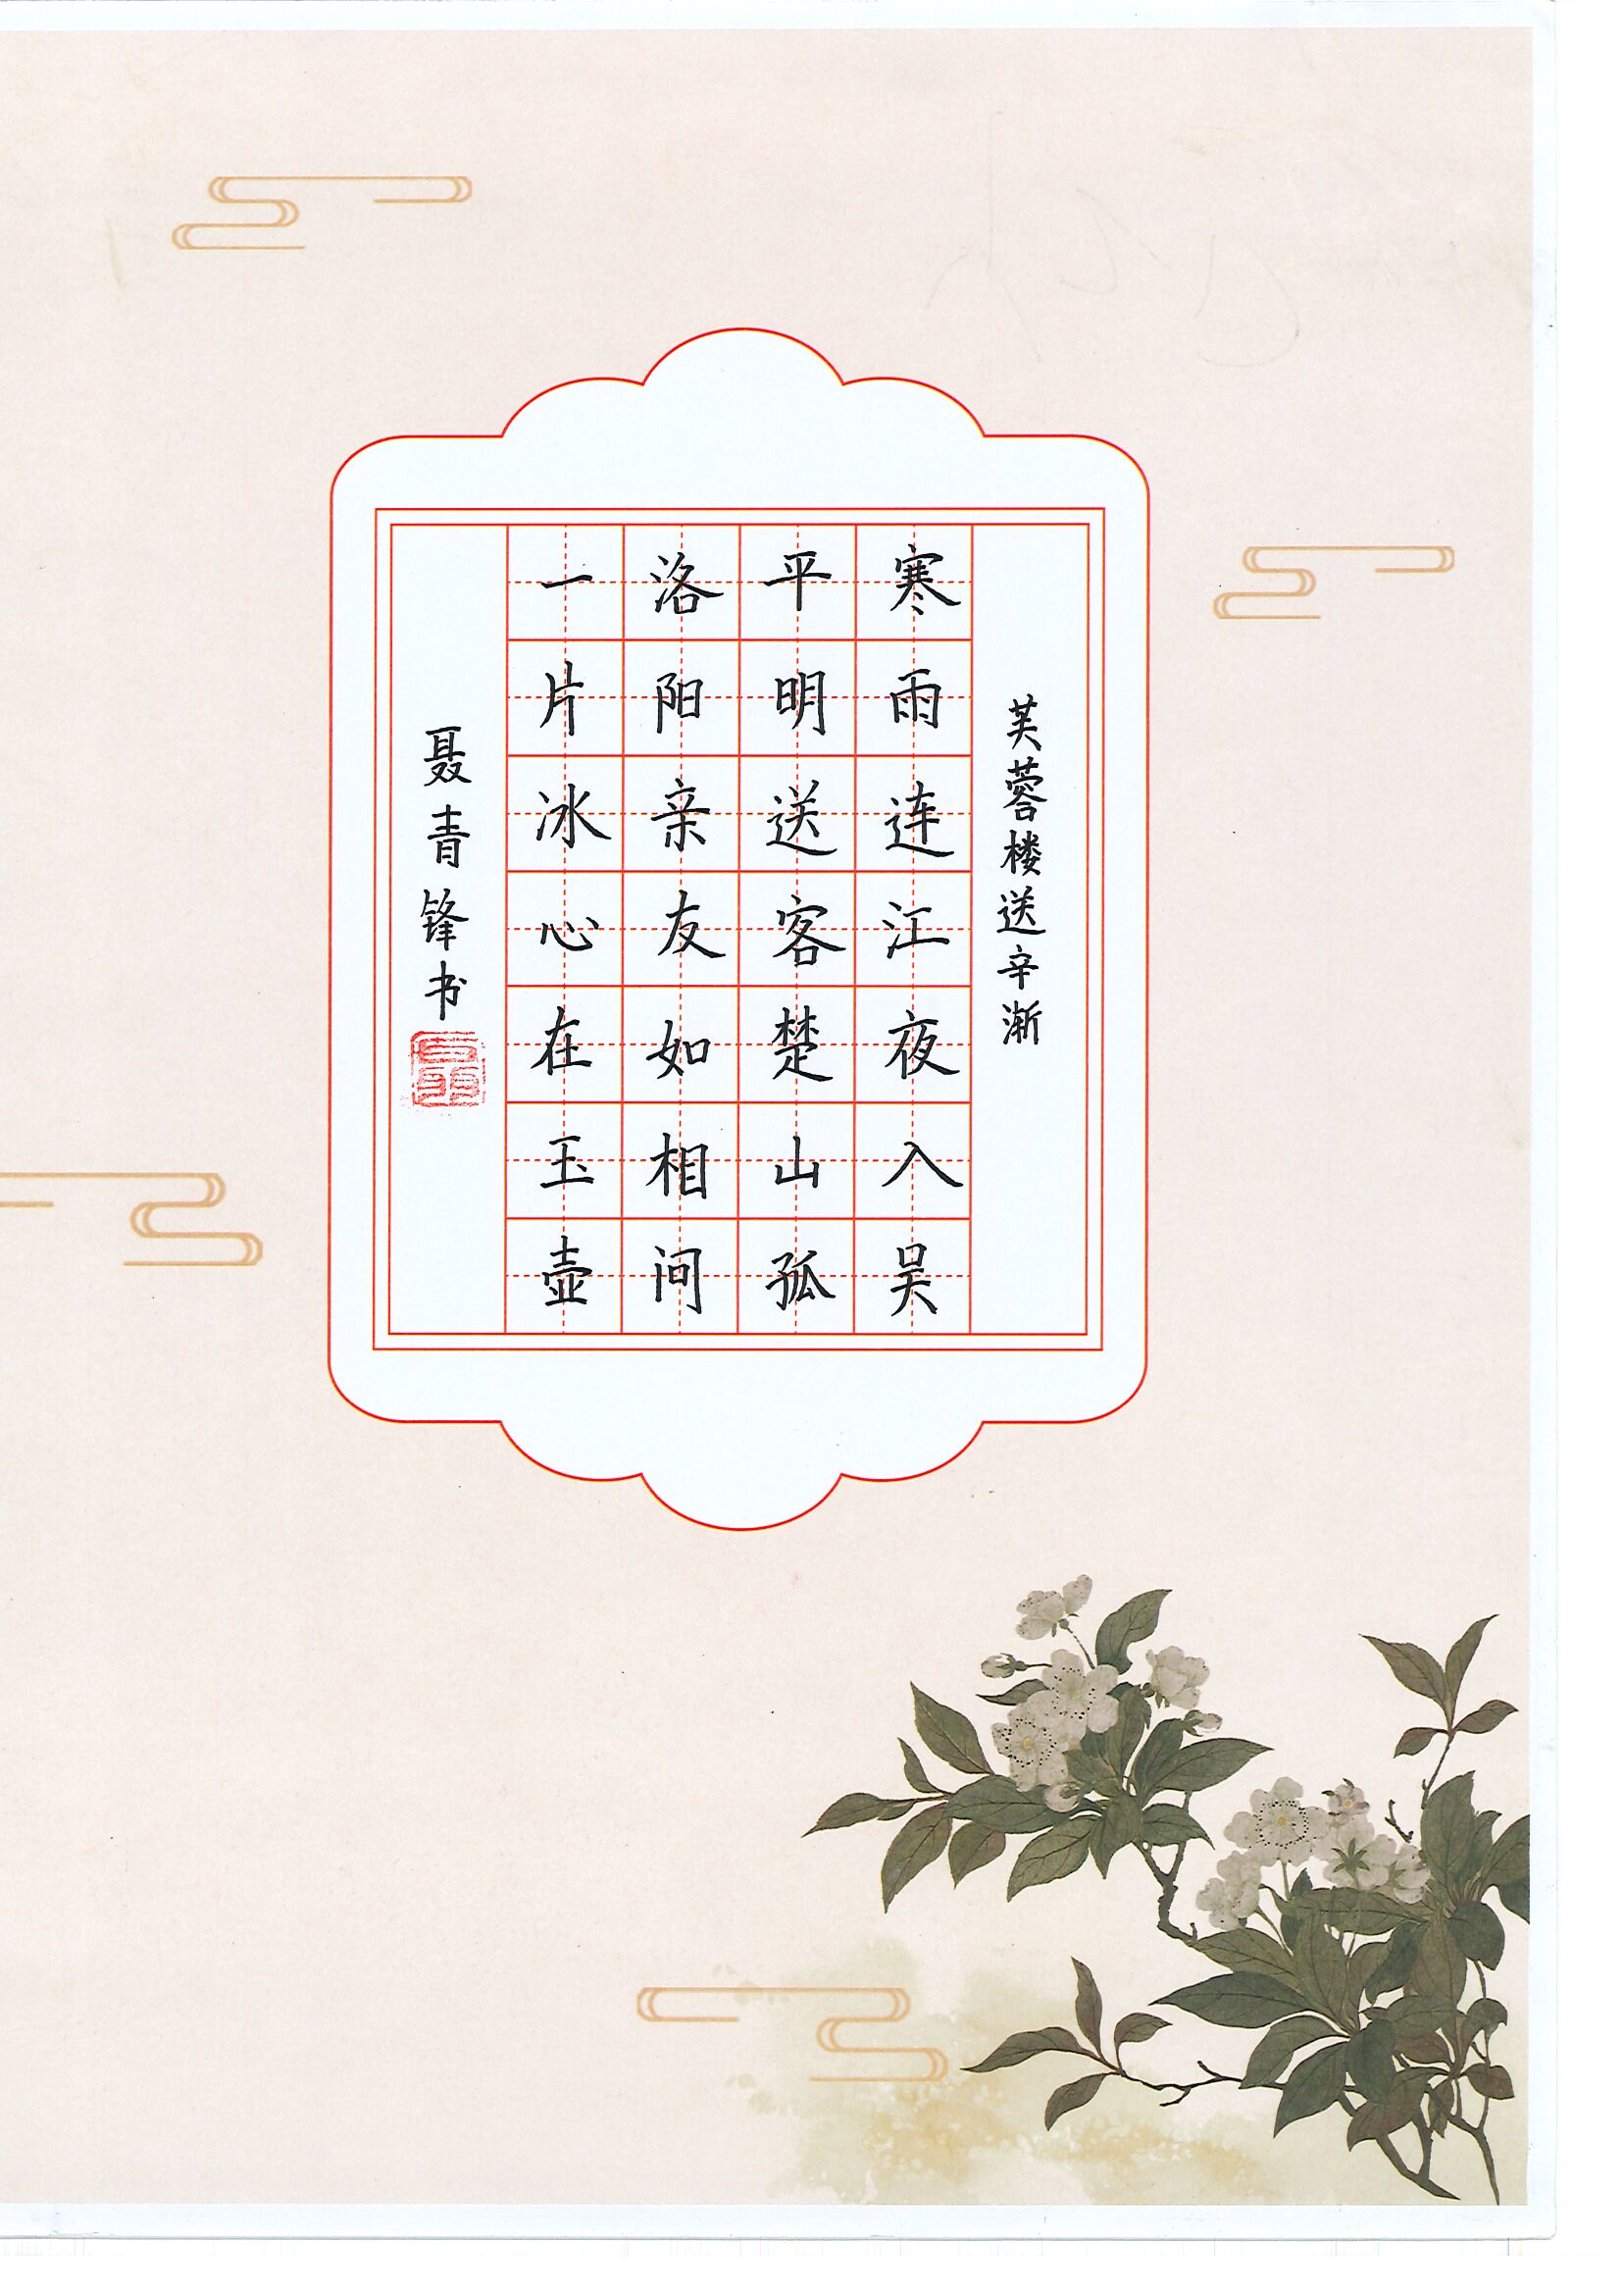 芙蓉楼送辛渐
寒雨连江夜入吴
平明送客楚山孤
洛阳亲友如相间
一片冰心在玉壶
聂青锋书